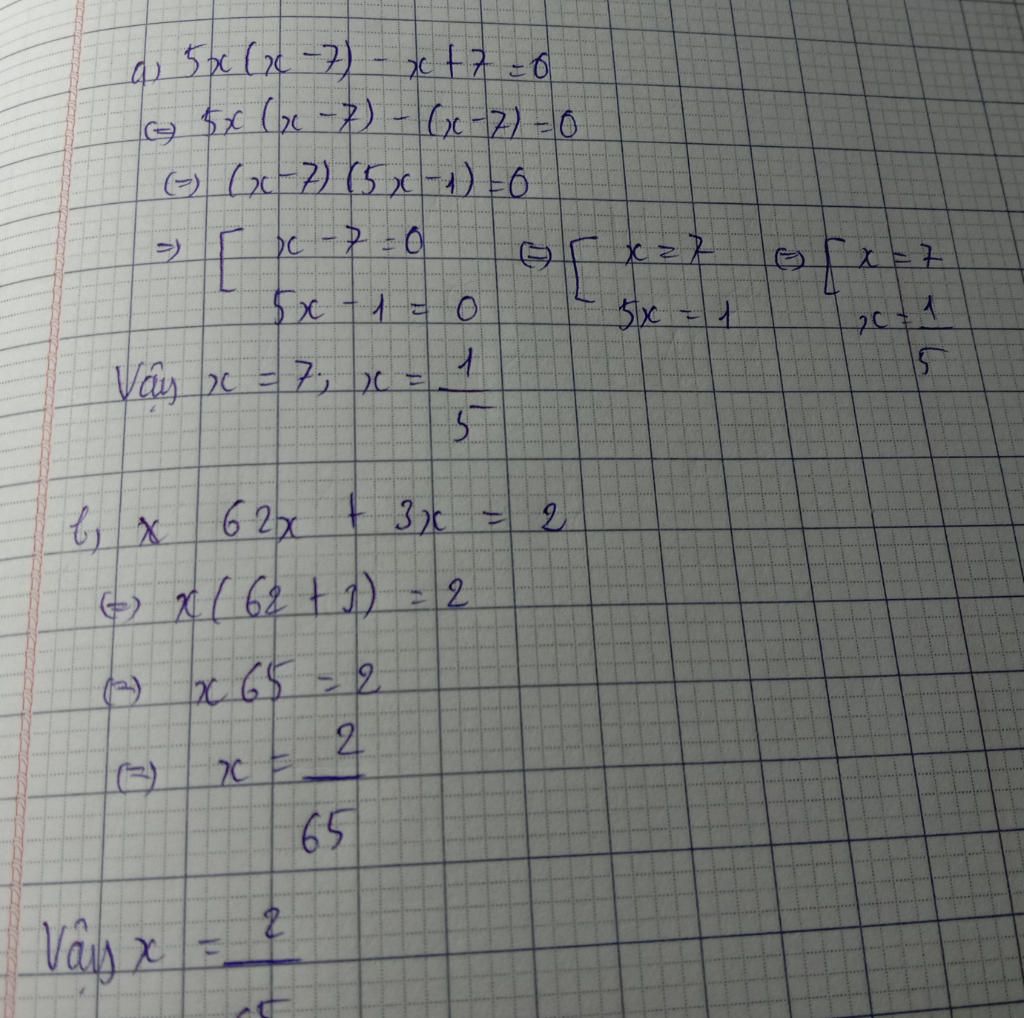 a, 5x(x-7) - x+7 = 0
⇔ 5x(x-7) - (x-7) = 0
⇔ (x-7)(5x-1) = 0
⇒ [ x-7 = 0 ⇔ [ x = 7 ⇔ [ x = 7
5x - 1 = 0 5x = 1 x = 1/5
Vậy x = 7; x = 1/5
b, x 62x + 3x = 2
⇔ x(62 + 3) = 2
⇔ x 65 = 2
⇔ x = 2/65
Vậy x = 2/65